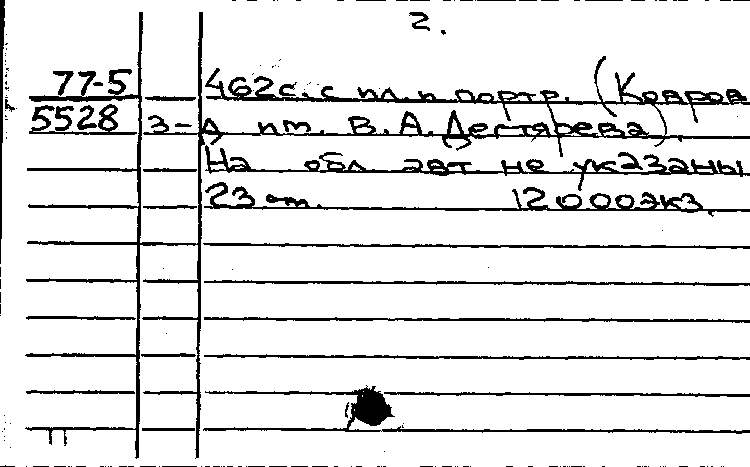 2.
77-5 462с. с ил. и портр. (Ковров
5528 з-д им. В. А. Дегтярева).
На обл. авт. не указаны
23 см. 12000экз.
П